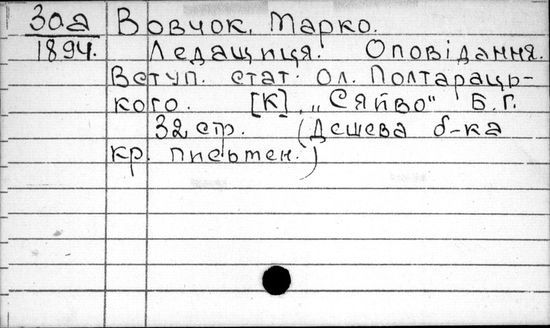 30а Вовчок, Марко.
1894. Ледащиця. Оповідання.
Вступ. стат. Ол. Полтараць-
кого. [К], "Сяйво" Б.Г.
32 стр. (Дешева б-ка
кр. письмен.)